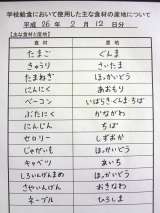 学校給食において使用した主な食材の産地について
平成 26 年 2 月 12 日分
【主な食材と産地】
食材 産地
たまご ぐんま
きゅうり さいたま
たまねぎ ほっかいどう
にんにく あおもり
ベーコン いばらき ぐんま ちば
ぶたにく かながわ
にんじん ちば
セロリー しずおか
じゃがいも ほっかいどう
キャベツ あいち
しろいんげんまめ ほっかいどう
さやいんげん おきなわ
ネーブル ひろしま